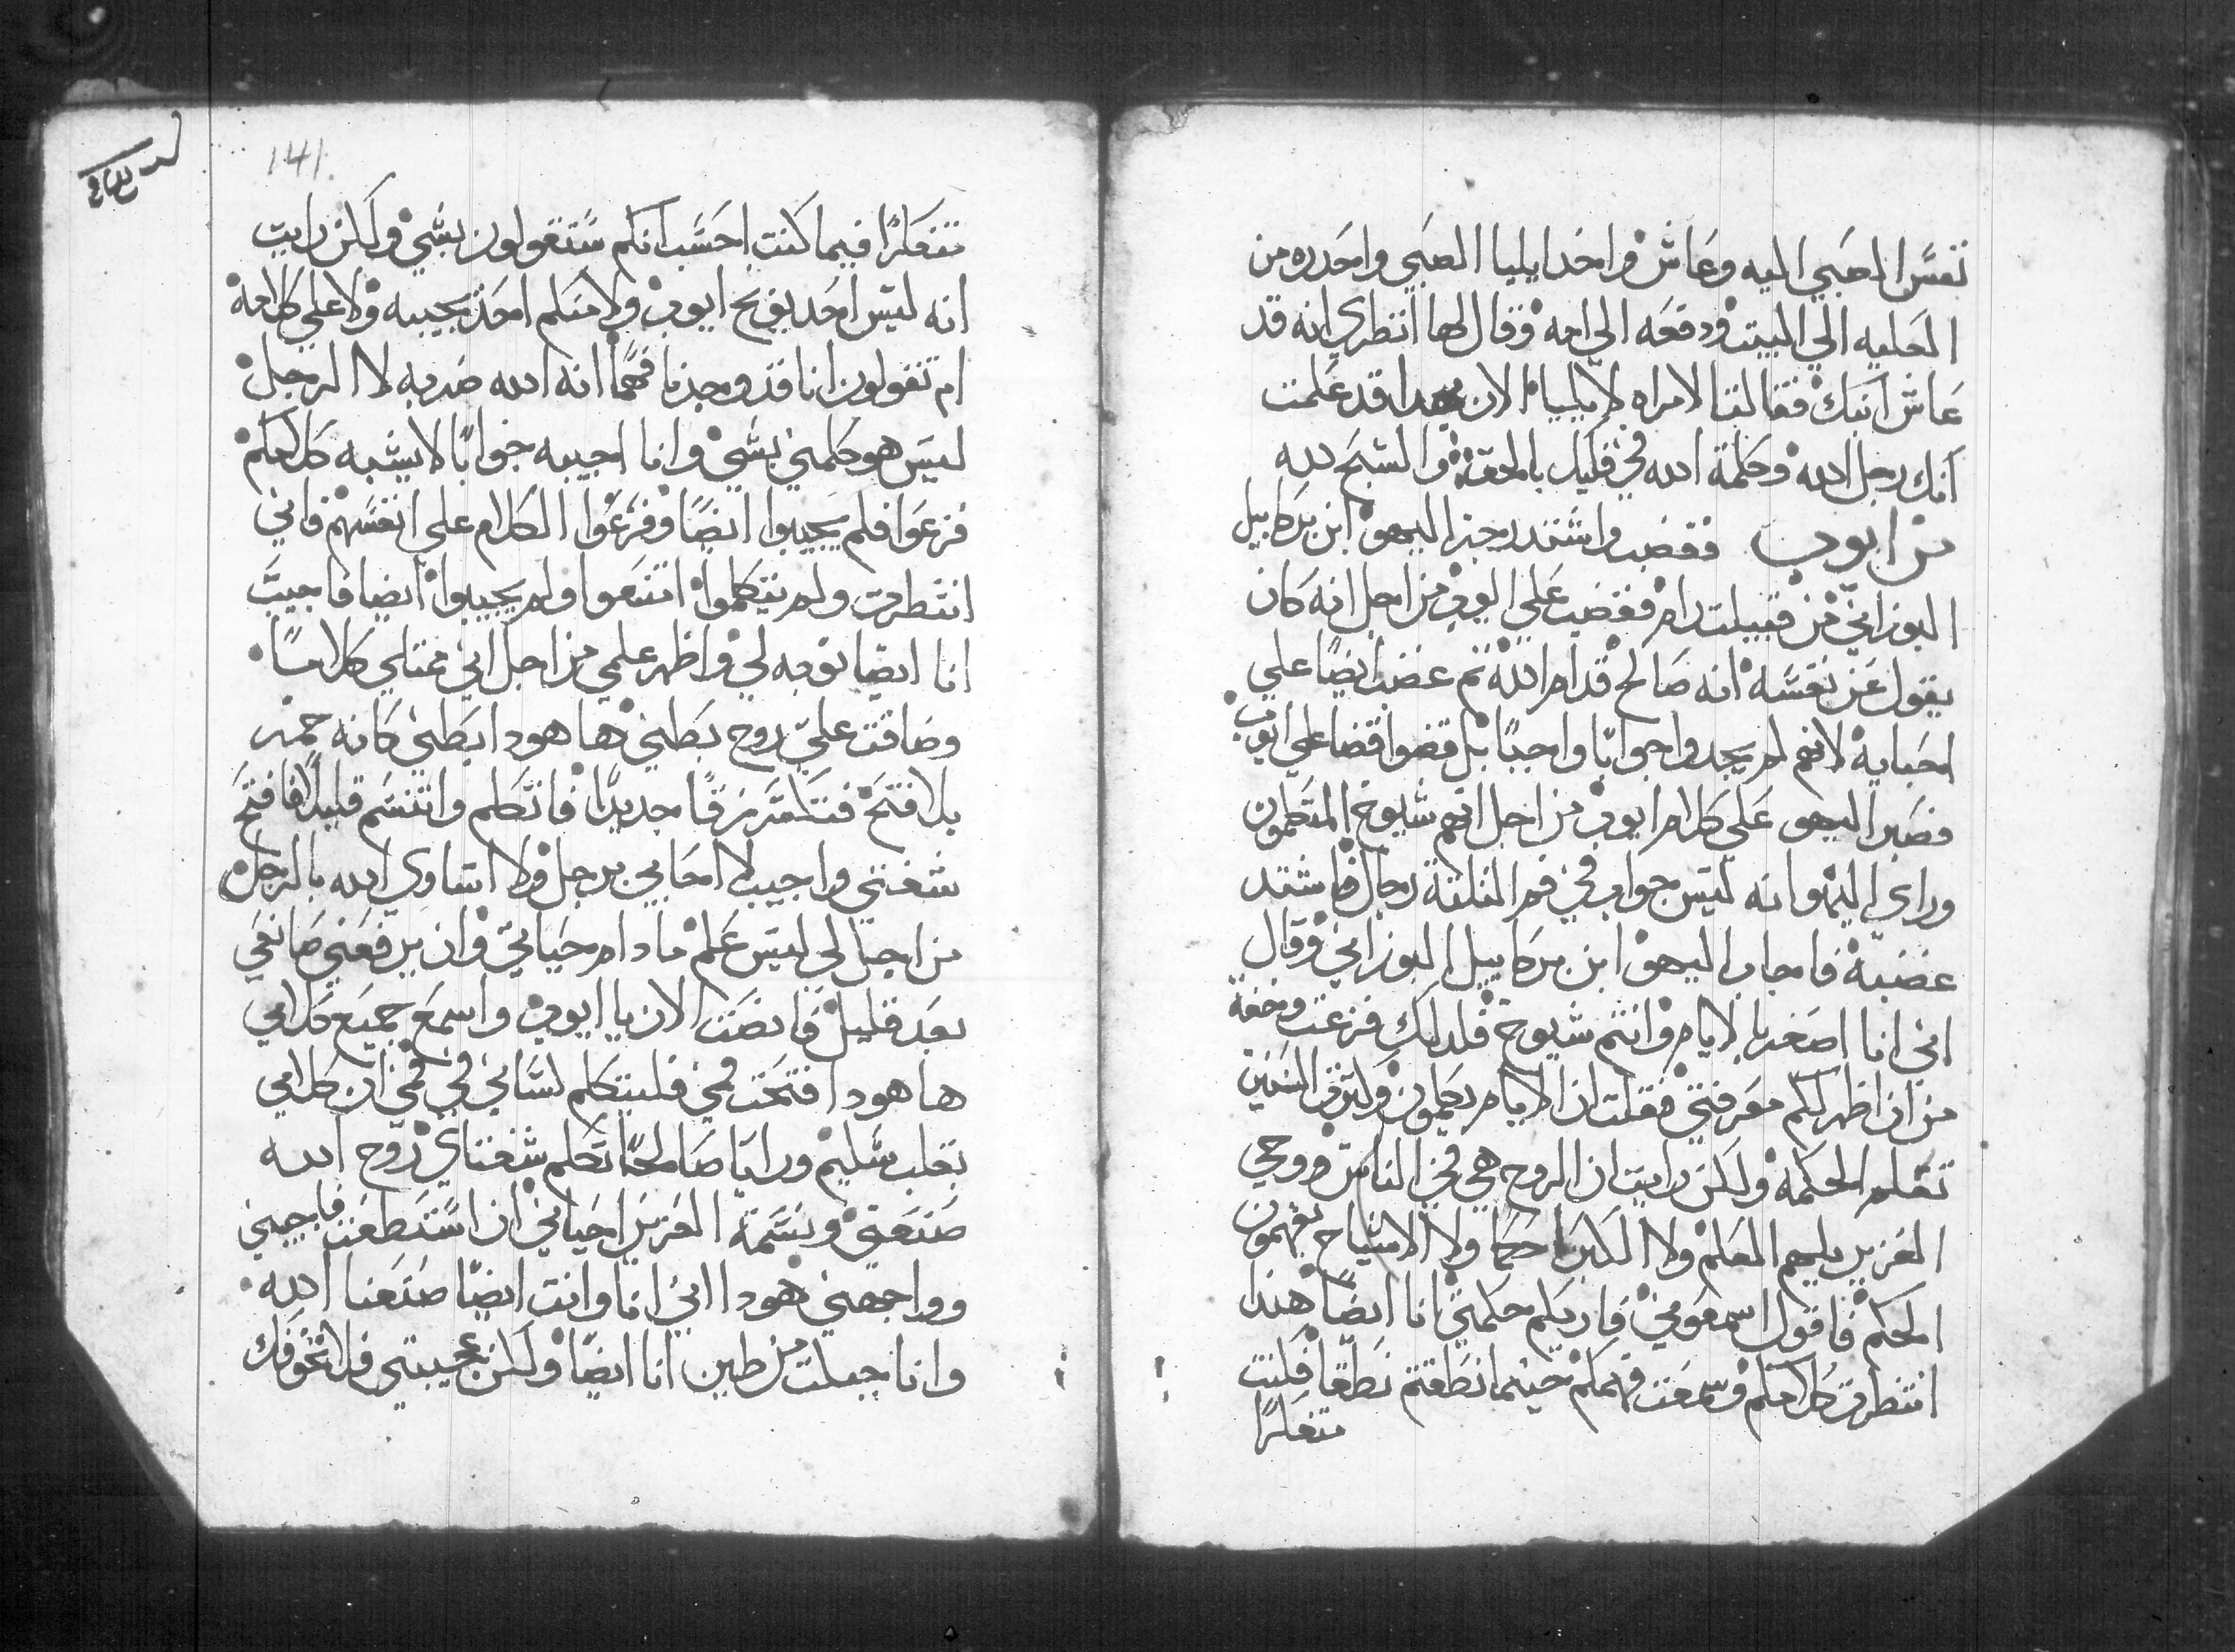 نفس الصبي اليه وعاش واخد ايليا الصبي واحدره من
العليه الي البيت ودفعه الي امه وقال لها انظري انه قد
عاش ابنك فقالت الامراه لايليا الان قد علمت
انك رجل الله وكلمة الله في فيك بالحق والسبح لله
من ايوب فغضب واشتد رجز اليهو ابن بركاييل
البوزاني من قبيلت رام فغضب علي ايوب من اجل انه كان
يقول عن نفسه انه صالح قدام الله ثم غضب ايضا علي
احبايه لانهم لم يجدوا جوابا واجبا بل قضوا قضا علي ايوب
فصبر اليهو علي كلام ايوب من اجل انهم شيوخ المتكلمون
وراي اليهو انه ليس جواب في فم الثلثة رجال فاشتد
غضبه فاجاب اليهو ابن بركاييل البوزاني وقال
اني انا اصغر بالايام وانتم شيوخ فلدلك فزعت وخفة
من ان اظهر لكم معرفتي فقلت ان الايام يتكلمون وكثرة السنين
تعلم الحكمه ولكن رايت ان الروح هي في الناس وروحي
العزيز يلهم العلم ولا الكبرا حكما ولا الاشياخ يفهمون
الحكم فاقول اسمعو مني فاريكم حكمتي انا ايضا هندا
انتظرت كلامكم وسمعت فهمكم حينما نطقتم نطقا فكنت
متفكرا
141
متفكرا فيما كنت احسب انكم ستقولون بشي ولكن رايت
انه ليس احد يوبخ ايوب ولا منكم احد يجيبه ولا علي كلامه
ام تقولون انا قد وجدنا فهما انه الله ضربه لا الرجل
ليس هو كلمني بشي وانا اجيبه جوابا لا يشبه كلامكم
فزعوا فلم يجيبوا ايضا وفزعوا الكلام علي انفسهم فاني
انتظرت ولم يتكلموا امتنعوا ولم يجيبوا ايضا فاجيب
انا ايضا نوبه لي واظهر علمي من اجل اني ممتلي كلاما
وضاقت علي روح بطني ها هودا بطني كانه خمر
بلا فتح زقا جديدا فاتكلم واتنسم قليلا فافتح
شفتي واجيب لا احابي برجل ولا اساوي الله بالرجل
من اجل لي ليس علم مادام حياتي وان يرفعني صانعي
بعد قليل فانصت الان يا ايوب واسمع جميع كلامي
ها هودا فتحت فمي فليتكلم لساني في فمي ان كلامي
بقلب سليم ورايا صالحا تكلم شفتاي روح الله
صنعتني ونسمة العزيز احياني ان استطعت فاجبني
وواجهني هودا اني انا وانت ايضا صنعنا الله
وانا جبلت من طين انا ايضا ولكن هيبتي فلا تخوفك